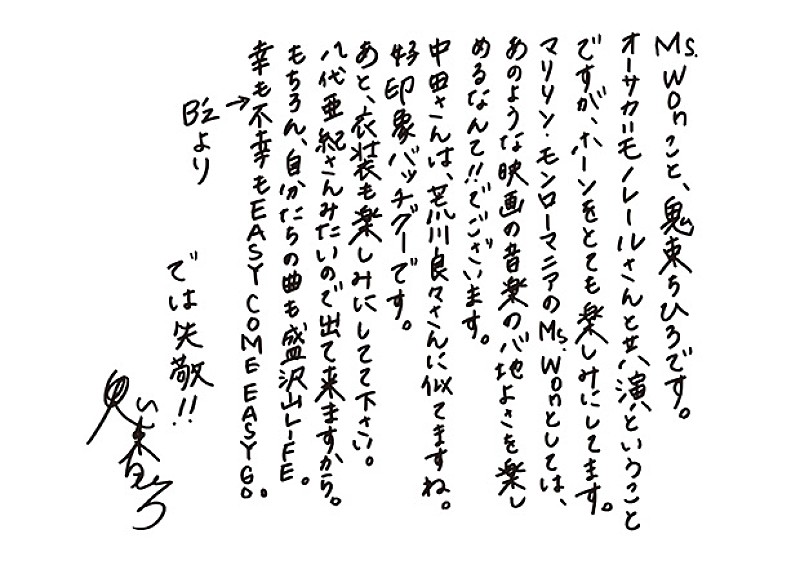 Ms. Wonこと、鬼束ちひろです。
オーサカ＝モノレールさんと共演ということ
ですが、ホーンをとても楽しみにしてます。
マリリン・モンローマニアのMs. Wonとしては、
あのような映画の音楽の心地よさを楽し
めるなんて!!でございます。
中田さんは、荒川良々さんに似てますね。
好印象バッチグーです。
あと、衣装も楽しみにしてて下さい。
八代亜紀さんみたいので出て来ますから。
もちろん、自分たちの曲も盛沢山LIFE。
幸も不幸もEASY COME EASY GO。
→
B'zより
では失敬!!
鬼束ちひろ